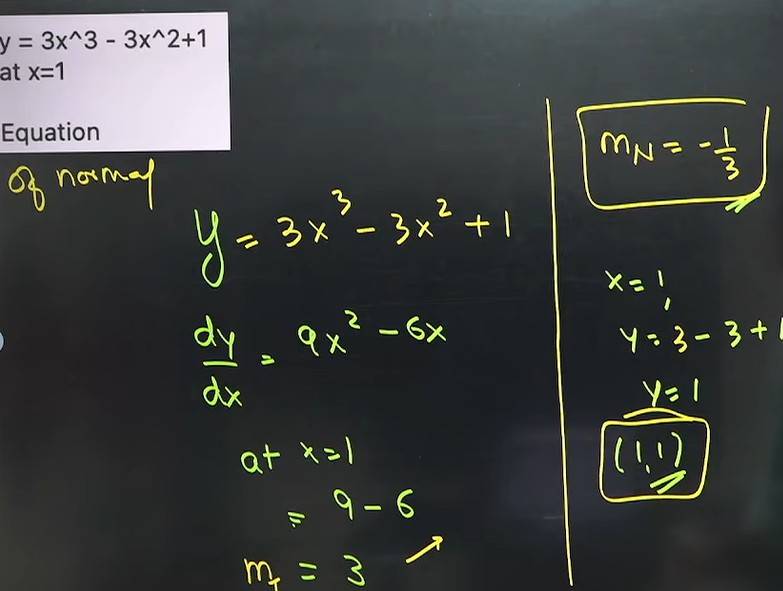 y = 3x^3 - 3x^2+1
at x=1
Equation
of normal
y = 3x³ - 3x² + 1
dy/dx = 9x² - 6x
at x=1
= 9 - 6
m_T = 3
m_N = -1/3
x = 1,
y = 3 - 3 - 3 + 1
y = 1
(1,1)